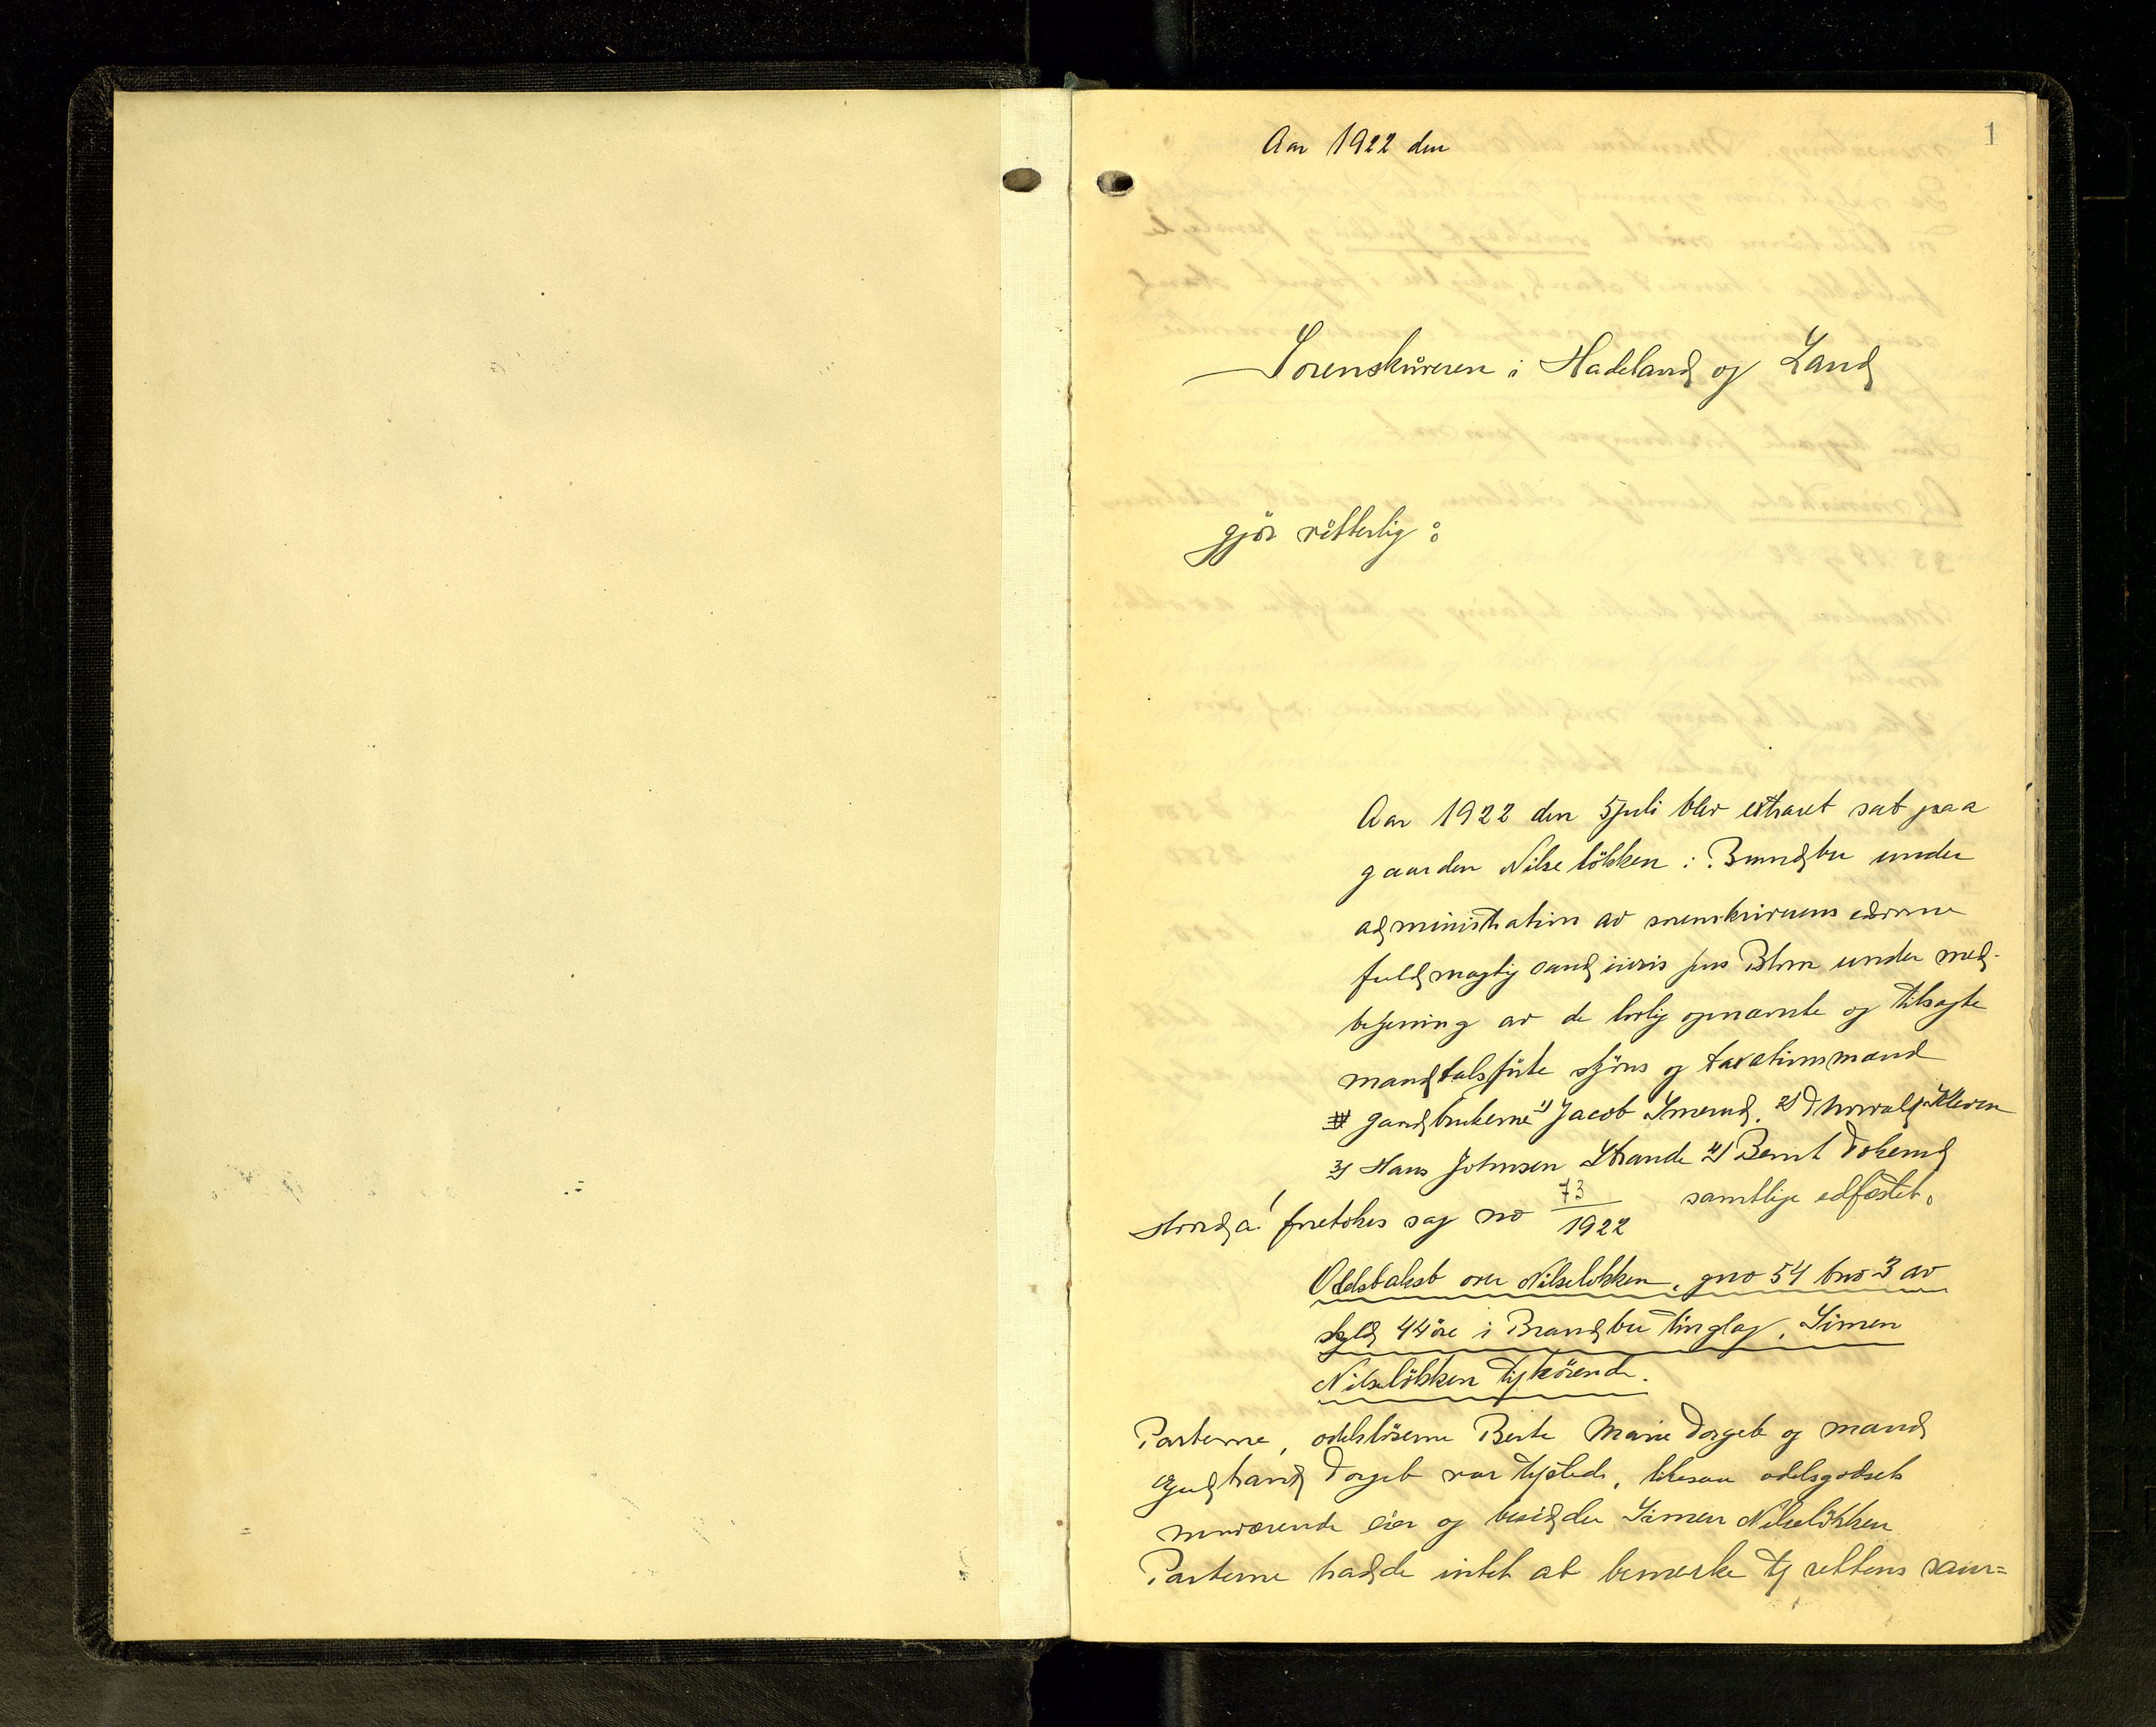 1
Aar 1922 den
Sorenskriveren i Hadeland og Land
gjör vitterlig:
Aar 1922 den 5 juli blev extraret sat paa
gaarden Nilselökken i Brandbu under
administration av sorenskriverens edsvorne
fuldmægtig cand. juris Jens Blom under med-
betjening av de lovlig opnævnte og tilsagte
mandtalsførte skjøns og taxationsmænd
gardbrukerne 1) Jacob Smerud, 2) Thorvald Kleven
3) Hans Johnsen Strande 4) Bernt Dokerud
foretokes sag no 73/1922 samtlige edfæstet.
Odelstakst over Nilselökken, gno 54 bno 3 av
skyld 44 øre i Brandbu tinglag, Simen
Nilselökken tilhörende.
Parterne, odelslöserne Berte Marie Dorget og mand
Gudbrand Dorget var tilstede, likesaa odelsgodsets
nuværende eier og besidder Simen Nilselökken
Parterne hadde intet at bemerke til rettens sam=